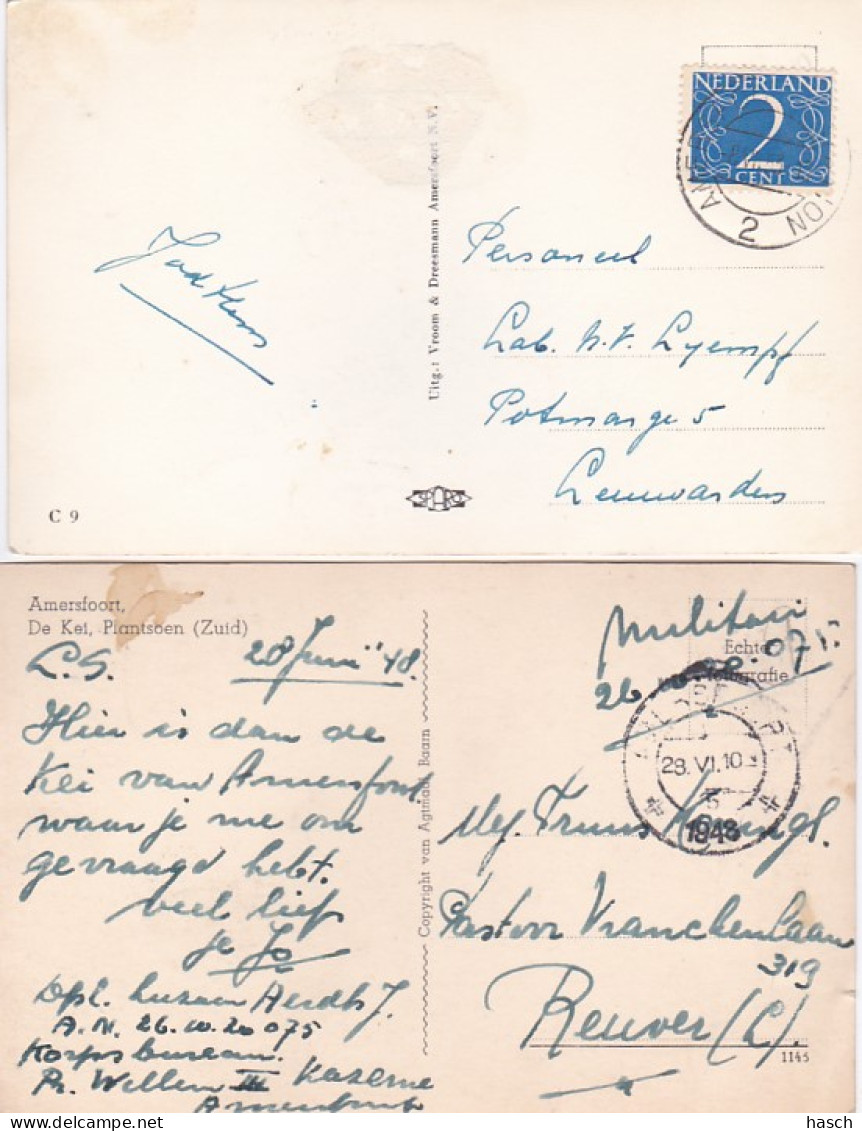 NEDERLAND
2
CENT
2
Uitg.: Vroom & Dreesmann Amersfoort N.V.
Personeel
Lab. N.V. Lyempf
Potmarge 5
Leeuwarden
SPARO
C 9
Amersfoort,
De Kei, Plantsoen (Zuid)
L.S. 28 Juni '48.
Hier is dan de
Kei van Amersfoort
waar je me om
gevraagd hebt.
veel liefs
je Jo
Dpl. huzaar J.
A.N. 26.10.20 075
Korpsbureau.
Pr. Willem III Kazerne
Amersfoort
Copyright van Agtmaal, Baarn
Militair
Echte
26 075
fotografie
AMERSFOORT
28.VI.10
5
1948
Mej. Truus
Pastoor Vranckenlaan
319
Reuver (L).
1145
hasch